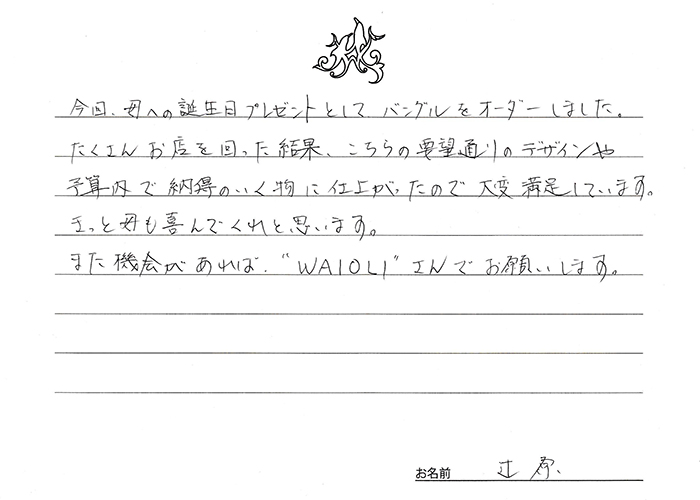 今回、母への誕生日プレゼントとして バングルをオーダーしました。
たくさん お店を回った結果、こちらの要望通りの デザインや
予算内で 納得のいく物に仕上がったので 大変 満足しています。
きっと母も喜んでくれと思います。
また機会があれば、"WAIOLI"さんで お願いします。
お名前 辻